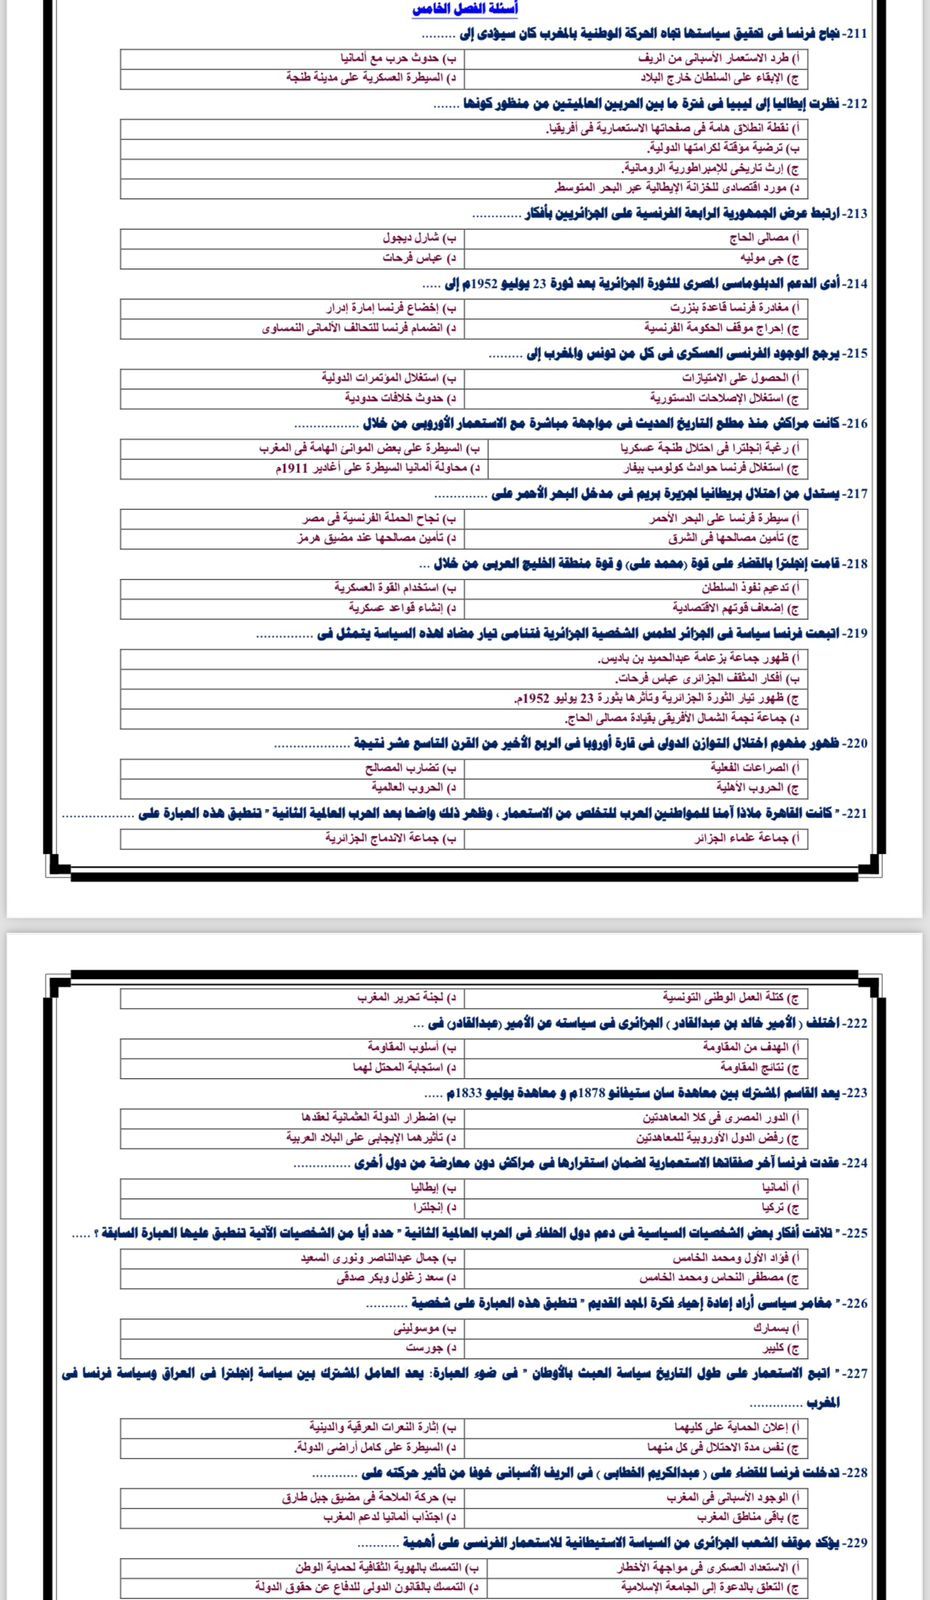 أسئلة الفصل الخامس
211- نجاح فرنسا فى تحقيق سياستها تجاه الحركة الوطنية بالمغرب كان سيؤدى إلى .........
أ) طرد الاستعمار الأسبانى من الريف ب) حدوث حرب مع ألمانيا
ج) الإبقاء على السلطان خارج البلاد د) السيطرة العسكرية على مدينة طنجة
212- نظرت إيطاليا إلى ليبيا فى فترة ما بين الحربين العالميتين من منظور كونها .......
أ) نقطة انطلاق هامة فى صفحاتها الاستعمارية فى أفريقيا.
ب) ترضية مؤقتة لكرامتها الدولية.
ج) إرث تاريخى للإمبراطورية الرومانية.
د) مورد اقتصادى للخزانة الإيطالية عبر البحر المتوسط.
213- ارتبط عرض الجمهورية الرابعة الفرنسية على الجزائريين بأفكار .............
أ) مصالى الحاج ب) شارل ديجول
ج) جى موليه د) عباس فرحات
214- أدى الدعم الدبلوماسى المصرى للثورة الجزائرية بعد ثورة 23 يوليو 1952م إلى .....
أ) مغادرة فرنسا قاعدة بنزرت ب) إخضاع فرنسا إمارة إدرار
ج) إحراج موقف الحكومة الفرنسية د) انضمام فرنسا للتحالف الألمانى النمساوى
215- يرجع الوجود الفرنسى العسكرى فى كل من تونس والمغرب إلى .........
أ) الحصول على الامتيازات ب) استغلال المؤتمرات الدولية
ج) استغلال الإصلاحات الدستورية د) حدوث خلافات حدودية
216- كانت مراكش منذ مطلع التاريخ الحديث فى مواجهة مباشرة مع الاستعمار الأوروبى من خلال .................
أ) رغبة إنجلترا فى احتلال طنجة عسكريا ب) السيطرة على بعض الموانئ الهامة فى المغرب
ج) استغلال فرنسا حوادث كولومب بيفار د) محاولة ألمانيا السيطرة على أغادير 1911م
217- يستدل من احتلال بريطانيا لجزيرة بريم فى مدخل البحر الأحمر على ..............
أ) سيطرة فرنسا على البحر الأحمر ب) نجاح الحملة الفرنسية فى مصر
ج) تأمين مصالحها فى الشرق د) تأمين مصالحها عند مضيق هرمز
218- قامت إنجلترا بالقضاء على قوة (محمد على) و قوة منطقة الخليج العربى من خلال ...
أ) تدعيم نفوذ السلطان ب) استخدام القوة العسكرية
ج) إضعاف قوتهم الاقتصادية د) إنشاء قواعد عسكرية
219- اتبعت فرنسا سياسة فى الجزائر لطمس الشخصية الجزائرية فتنامى تيار مضاد لهذه السياسة يتمثل فى ...............
أ) ظهور جماعة بزعامة عبدالحميد بن باديس.
ب) أفكار المثقف الجزائرى عباس فرحات.
ج) ظهور تيار الثورة الجزائرية وتأثرها بثورة 23 يوليو 1952م.
د) جماعة نجمة الشمال الأفريقى بقيادة مصالى الحاج.
220- ظهور مفهوم اختلال التوازن الدولى فى قارة أوروبا فى الربع الأخير من القرن التاسع عشر نتيجة ....................
أ) الصراعات الفعلية ب) تضارب المصالح
ج) الحروب الأهلية د) الحروب العالمية
221- " كانت القاهرة ملاذا آمنا للمواطنين العرب للتخلص من الاستعمار ، وظهر ذلك واضحا بعد الحرب العالمية الثانية " تنطبق هذه العبارة على ...................
أ) جماعة علماء الجزائر ب) جماعة الاندماج الجزائرية
ج) كتلة العمل الوطنى التونسية د) لجنة تحرير المغرب
222- اختلف ( الأمير خالد بن عبدالقادر ) الجزائرى فى سياسته عن الأمير (عبدالقادر) فى ...
أ) الهدف من المقاومة ب) أسلوب المقاومة
ج) نتائج المقاومة د) استجابة المحتل لهما
223- يعد القاسم المشترك بين معاهدة سان ستيفانو 1878م و معاهدة يوليو 1833م .....
أ) الدور المصرى فى كلا المعاهدتين ب) اضطرار الدولة العثمانية لعقدها
ج) رفض الدول الأوروبية للمعاهدتين د) تأثيرهما الإيجابى على البلاد العربية
224- عقدت فرنسا آخر صفقاتها الاستعمارية لضمان استقرارها فى مراكش دون معارضة من دول أخرى ...............
أ) ألمانيا ب) إيطاليا
ج) تركيا د) إنجلترا
225- " تلاقت أفكار بعض الشخصيات السياسية فى دعم دول الحلفاء فى الحرب العالمية الثانية " حدد أيا من الشخصيات الآتية تنطبق عليها العبارة السابقة ؟ .....
أ) فؤاد الأول ومحمد الخامس ب) جمال عبدالناصر ونورى السعيد
ج) مصطفى النحاس ومحمد الخامس د) سعد زغلول وبكر صدقى
226- " مغامر سياسى أراد إعادة إحياء فكرة المجد القديم " تنطبق هذه العبارة على شخصية ...........
أ) بسمارك ب) موسولينى
ج) كليبر د) جورست
227- " اتبع الاستعمار على طول التاريخ سياسة العبث بالأوطان " فى ضوء العبارة: يعد العامل المشترك بين سياسة إنجلترا فى العراق وسياسة فرنسا فى
المغرب ..............
أ) إعلان الحماية على كليهما ب) إثارة النعرات العرقية والدينية
ج) نفس مدة الاحتلال فى كل منهما د) السيطرة على كامل أراضى الدولة.
228- تدخلت فرنسا للقضاء على ( عبدالكريم الخطابى ) فى الريف الأسبانى خوفا من تأثير حركته على ............
أ) الوجود الأسبانى فى المغرب ب) حركة الملاحة فى مضيق جبل طارق
ج) باقى مناطق المغرب د) اجتذاب ألمانيا لدعم المغرب
229- يؤكد موقف الشعب الجزائرى من السياسة الاستيطانية للاستعمار الفرنسى على أهمية ...........
أ) الاستعداد العسكرى فى مواجهة الأخطار ب) التمسك بالهوية الثقافية لحماية الوطن
ج) التعلق بالدعوة إلى الجامعة الإسلامية د) التمسك بالقانون الدولى للدفاع عن حقوق الدولة